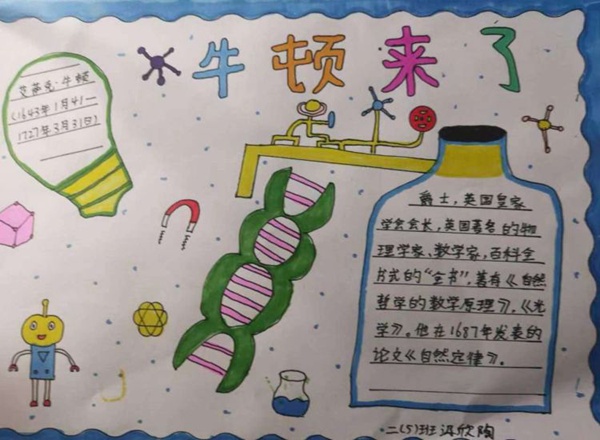 牛顿来了
艾萨克·牛顿
(1643年1月4日—
1727年3月31日)
爵士,英国皇家
学会会长,英国著名的物
理学家、数学家,百科全
书式的“全才”,著有《自然
哲学的数学原理》,《光
学》。他在1687年发表的
论文《自然定律》。
二(5)班 冯欣陶